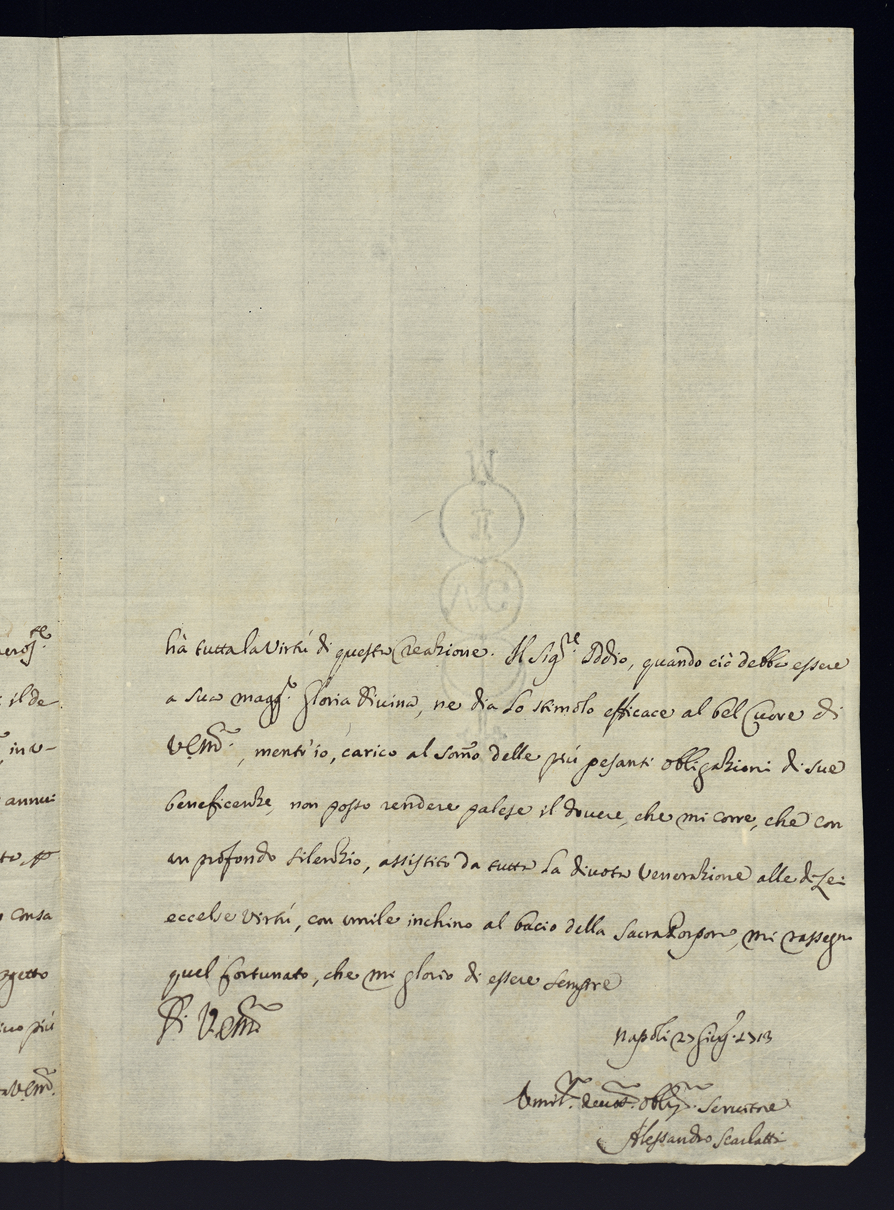 hà tutta la Virtù di questa Creazione. Il Sig.re Iddio, quando ciò debba essere
a sua magg.r Gloria Divina, ne dia lo stimolo efficace al bel Cuore di
V.Em.a, mentr'io, carico al som̃o delle più pesanti obligazioni di sue
beneficenze, non posso rendere palese il dovere, che mi corre, che con
un profondo silenzio, assistito da tutta la divota Venerazione alle di Lei
eccelse Virtù, con umile inchino al bacio della Sacra Porpora, mi rassegno
quel fortunato, che mi glorio di essere sempre
Di V.Em.a
Napoli 27 Giug. 1713
Umil.mo devot.mo oblig.mo Servitore
Alessandro Scarlatti
il de-
in v-
annui
consa
oggetto
più
V.Em.a
W
I